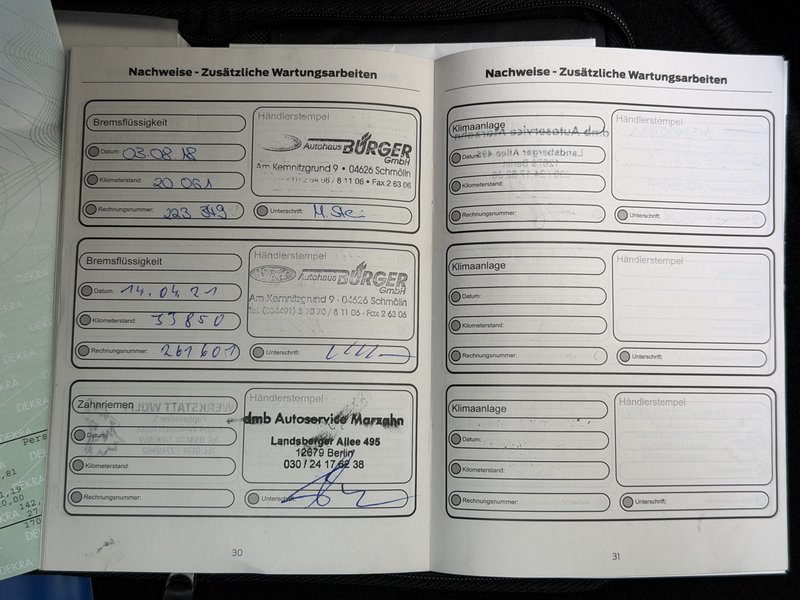 Nachweise - Zusätzliche Wartungsarbeiten
Bremsflüssigkeit
Datum: 03.08.18
Kilometerstand: 20 061
Rechnungsnummer: 223 349
Händlerstempel
Autohaus BÜRGER
GmbH
Am Kemnitzgrund 9 • 04626 Schmölln
/ 8 11 06 • Fax 2 63 06
Unterschrift:
Bremsflüssigkeit
Datum: 14.04.21
Kilometerstand: 33850
Rechnungsnummer: 261601
Händlerstempel
Autohaus BÜRGER
GmbH
Am Kemnitzgrund 9 - 04626 Schmölln
Tel. (034491) 5 70 70 / 8 11 06 - Fax 2 63 06
Unterschrift:
Zahnriemen
Datum:
Kilometerstand:
Rechnungsnummer:
Händlerstempel
dmb Autoservice Marzahn
Landsberger Allee 495
12679 Berlin
030 / 24 17 62 38
Unterschrift:
30
Nachweise - Zusätzliche Wartungsarbeiten
Klimaanlage
Datum:
Kilometerstand:
Rechnungsnummer:
Händlerstempel
Unterschrift:
Klimaanlage
Datum:
Kilometerstand:
Rechnungsnummer:
Händlerstempel
Unterschrift:
Klimaanlage
Datum:
Kilometerstand:
Rechnungsnummer:
Händlerstempel
Unterschrift:
31
DEKRA
DEKRA
DEKRA
DEKRA
Pers
,81
1,19
0,00
142,
27,
170